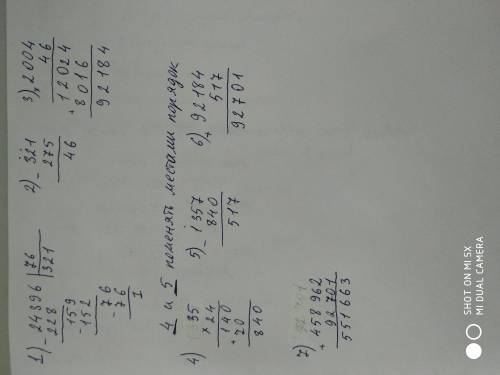 1) - 24396 | 76
228 | 321
- 159
152
- 76
76
1
2) - 321
275
46
3) × 2004
46
+ 12024
8016
92184
4 и 5 поменять местами порядок
4) 35
× 24
+ 140
70
840
5) - 1357
840
517
6) + 92184
517
92701
7) + 458962
92701
551663
SHOT ON MI 5X
MI DUAL CAMERA